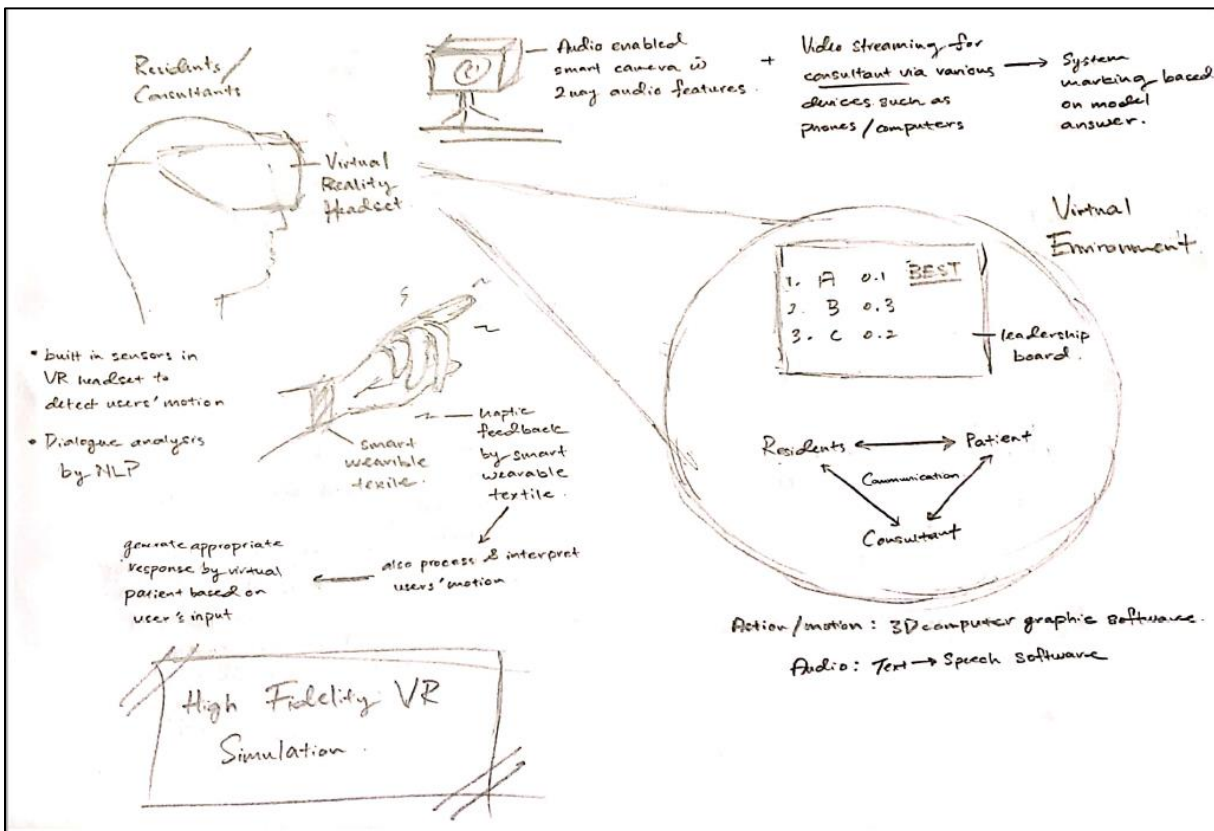 Residents/
Consultants
Virtual
Reality
Headset.
Audio enabled
smart camera w̄
2way audio features.
+
Video streaming for
consultant via various
devices such as
phones/computers
System
marking based
on model
answer.
Virtual
Environment.
1. A 0.1 BEST
2. B 0.3
3. C 0.2
leadership
board.
Residents
Patient
Communication.
Consultant
• built in sensors in
VR headset to
detect users' motion
• Dialogue analysis
by NLP
smart
wearible
texile.
Haptic
feedback
by smart
wearable
textile.
also process & interpret
users' motion
generate appropriate
response by virtual
patient based on
user's input
Action/motion : 3D computer graphic software.
Audio : Text → Speech software
High Fidelity VR
Simulation.